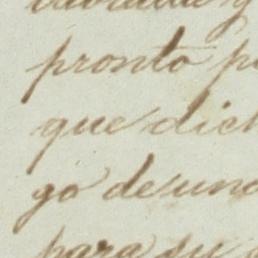 pronto
que dich
go de una
para su